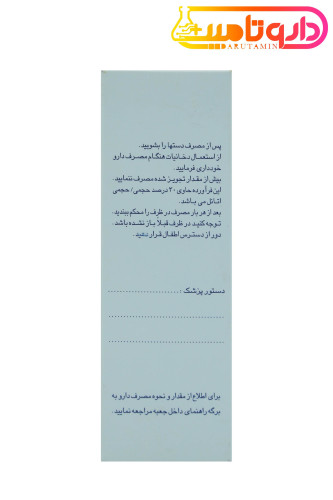 داروتامین
DARUTAMIN
پس از مصرف دستها را بشویید.
از استعمال دخانیات هنگام مصرف دارو
خودداری فرمایید.
بیش از مقدار تجویز شده مصرف ننمایید.
این فرآورده حاوی ۲۰ درصد حجمی/حجمی
اتانل می باشد.
بعد از هر بار مصرف در ظرف را محکم ببندید.
توجه کنید در ظرف قبلاً باز نشده باشد.
دور از دسترس اطفال قرار دهید.
دستور پزشک :
برای اطلاع از مقدار و نحوه مصرف دارو به
برگه راهنمای داخل جعبه مراجعه نمایید.